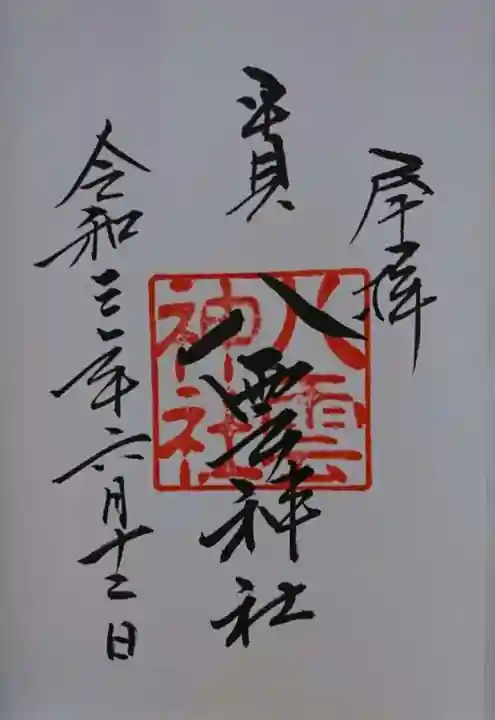 奉拝
平貝
八雲神社
令和三年六月十二日
八雲
神社